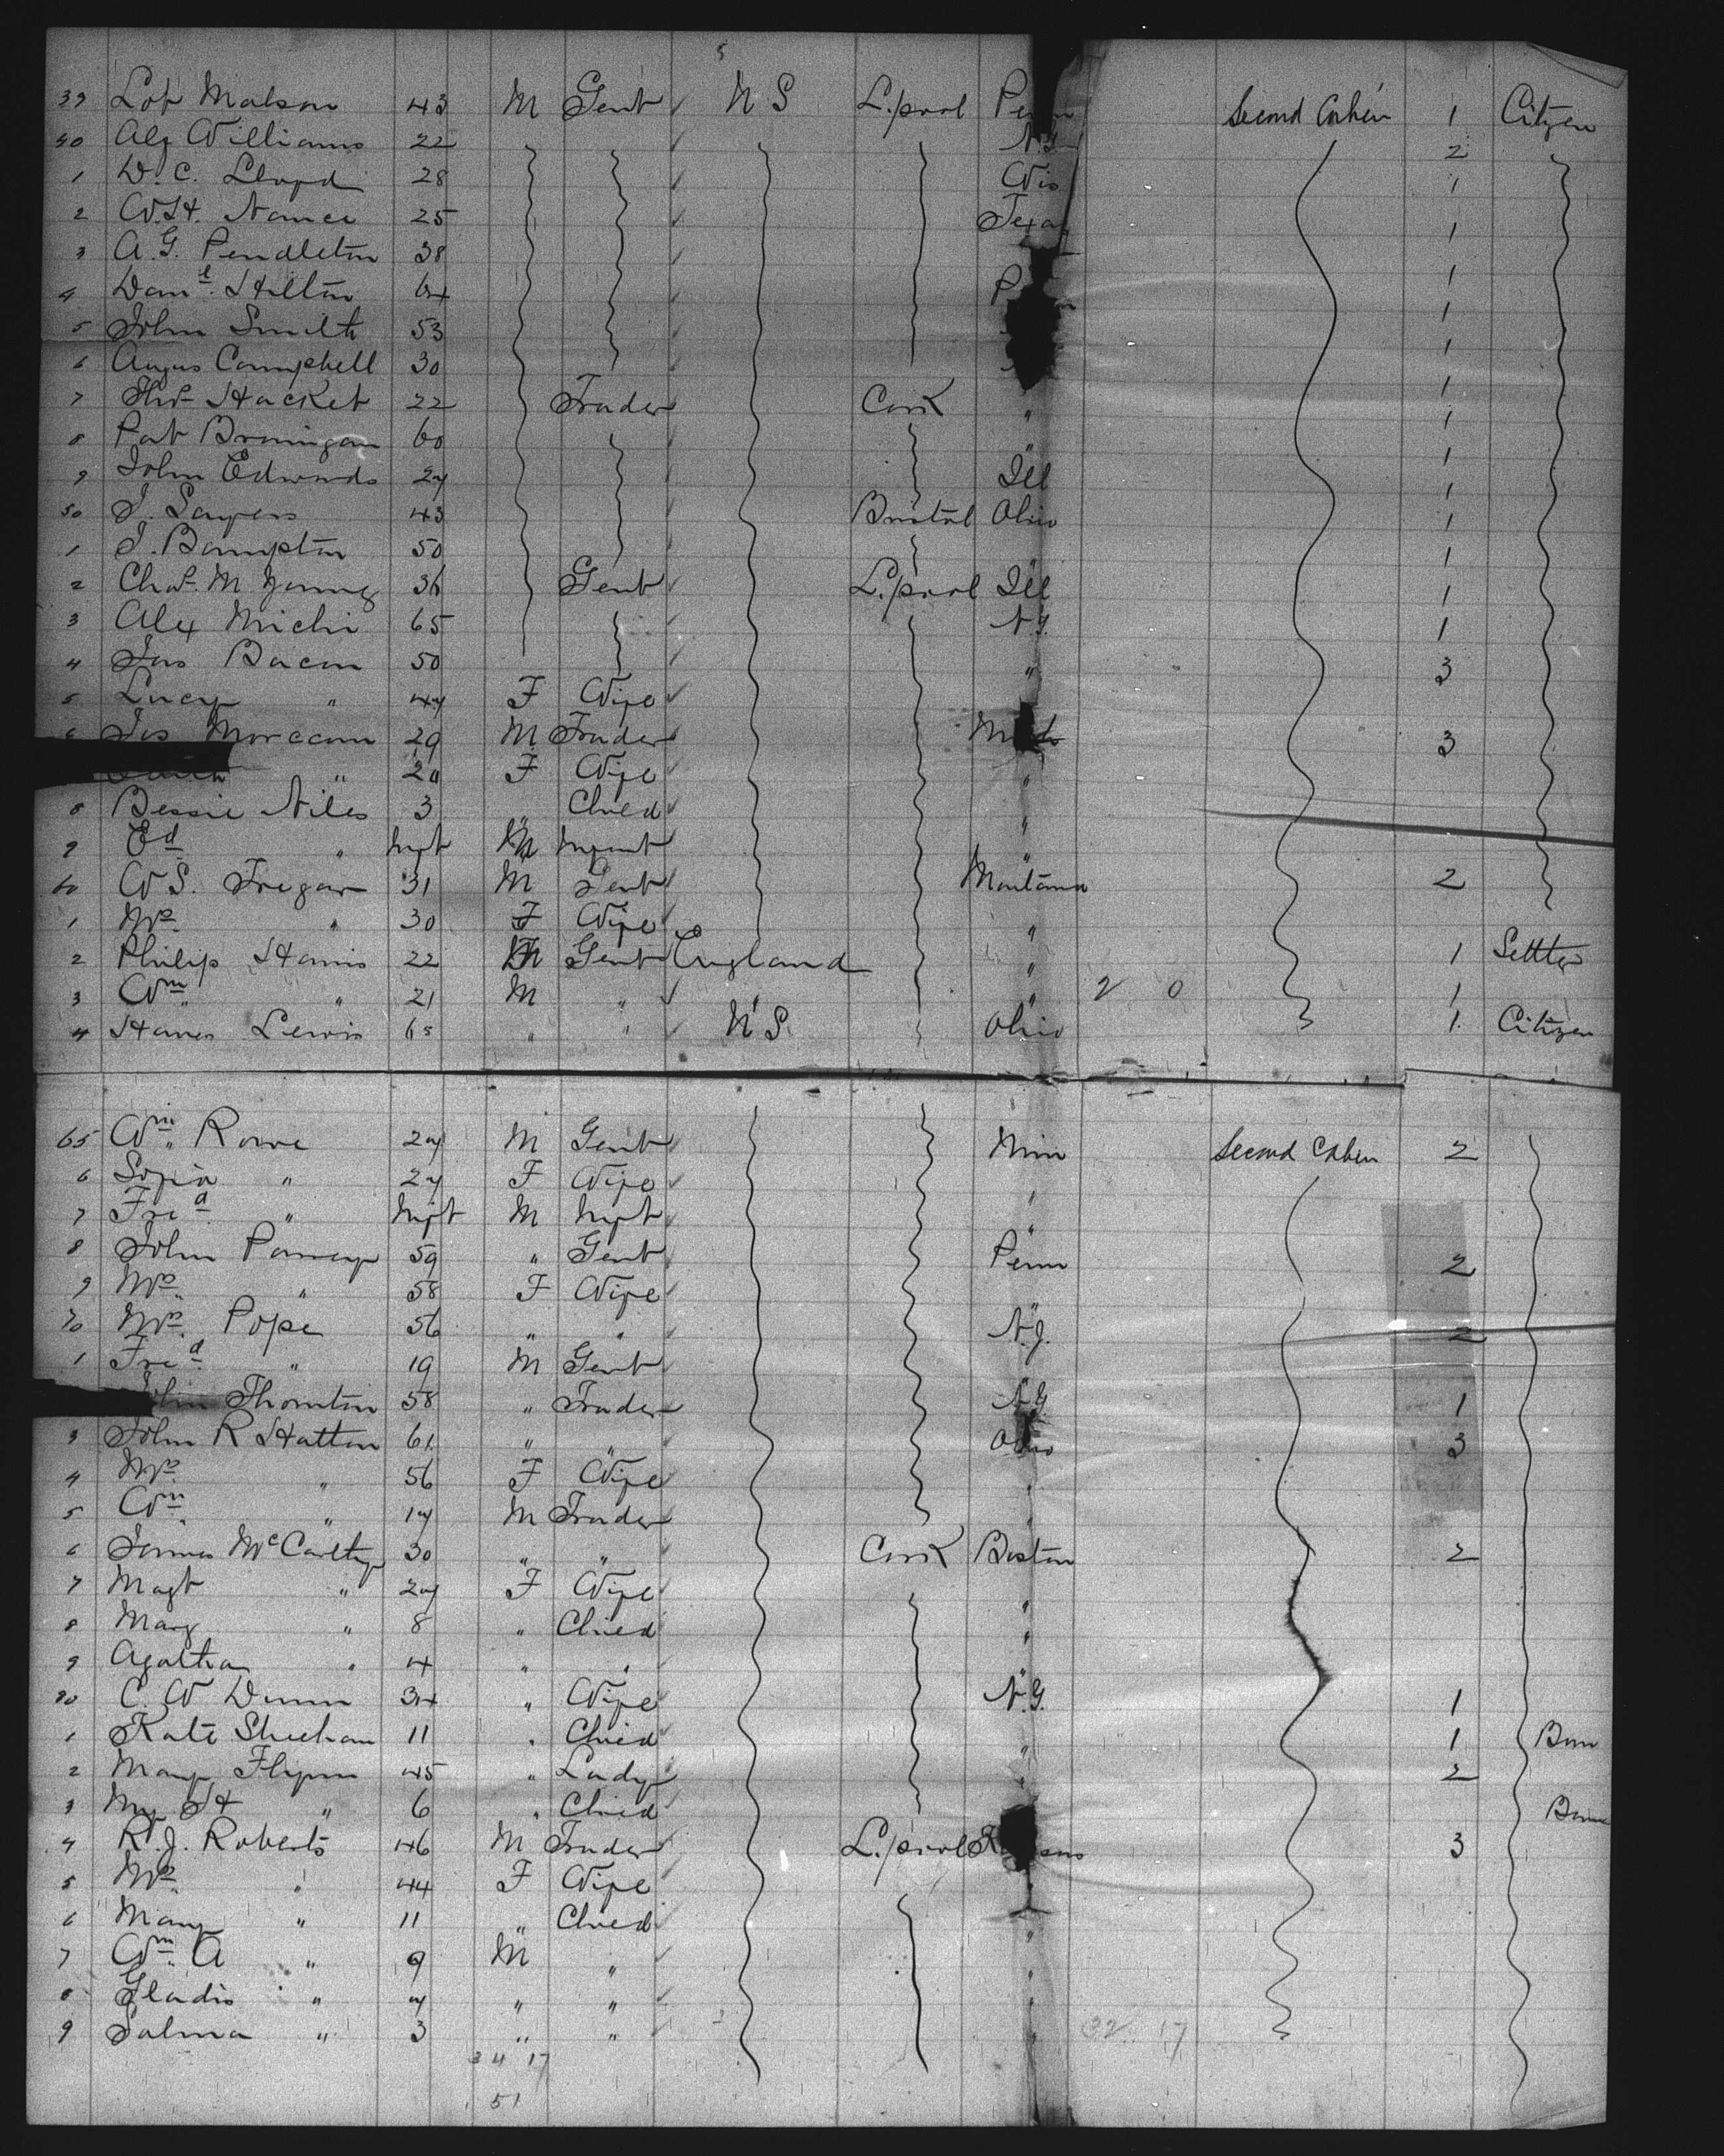 5
39 Lot Matson 43 M Gent U S L.pool Penn Second Cabin 1 Citizen
40 Alf Williams 22 N.Y. 2
1 D. C. Lloyd 28 Wis 1
2 W.H. Nance 25 Texas 1
3 A.G. Pendleton 38 " 1
4 Danl. Hilton 64 Penn 1
5 John Smith 53 1
6 Angus Campbell 30 1
7 Thos Hacket 22 Trader Cork " 1
8 Pat Brannigan 60 " 1
9 John Edwards 27 Ill 1
50 J. Sayers 43 Bristol Ohio 1
1 J. Bampton 50 " 1
2 Chas. M Young 36 Gent L.pool Ill 1
3 Alex Michi 65 N.Y. 1
4 Jas Bacon 50 " 3
5 Lucy " 47 F Wife
6 Jos Morccom 29 M Trader Mich 3
" 20 F Wife "
8 Bessie Niles 3 " Child "
9 Ed " Inft M Infant "
60 W S. Tregar 31 M Gent Montana 2
1 Mrs " 30 F Wife "
2 Philip Harris 22 M Gent England " 1 Settler
3 Wm " 21 M " " " 2 0 1
4 Lewis 65 " " U S. Ohio 1 Citizen
65 Wm. Rowe 27 M Gent Minn Second Cabin 2
6 Sopia " 27 F Wife "
7 Fred " Inft M Inft "
8 John Pomery 59 " Gent Penn 2
9 Mrs. " 58 F Wife "
70 Mrs. Pope 56 " " N.J. 2
1 Fred " 19 M Gent "
John Thornton 58 " Trader N.Y 1
3 John R Hatton 61 " " Ohio 3
4 Mrs. " 56 F Wife "
5 Wm " 17 M Trader "
6 James McCarthy 30 " " Cork Boston 2
7 Magt " 27 F Wife "
8 Mary " 8 " Child "
9 Agatha " 4 " " "
80 C. W Dunn 34 " Wife N.Y. 1
1 Kate Sheehan 11 " Child " 1 Born
2 Mary Flynn 45 " Lady " 2
3 My H " 6 " Child Born
4 R. J. Roberts 46 M Trader L.pool Kansas 3
5 Mrs. " 44 F Wife "
6 Mary " 11 " Child "
7 Wm. A " 9 M " "
8 Gladis " 7 " " "
9 Salma " 3 " " " 32 17
34 17
51